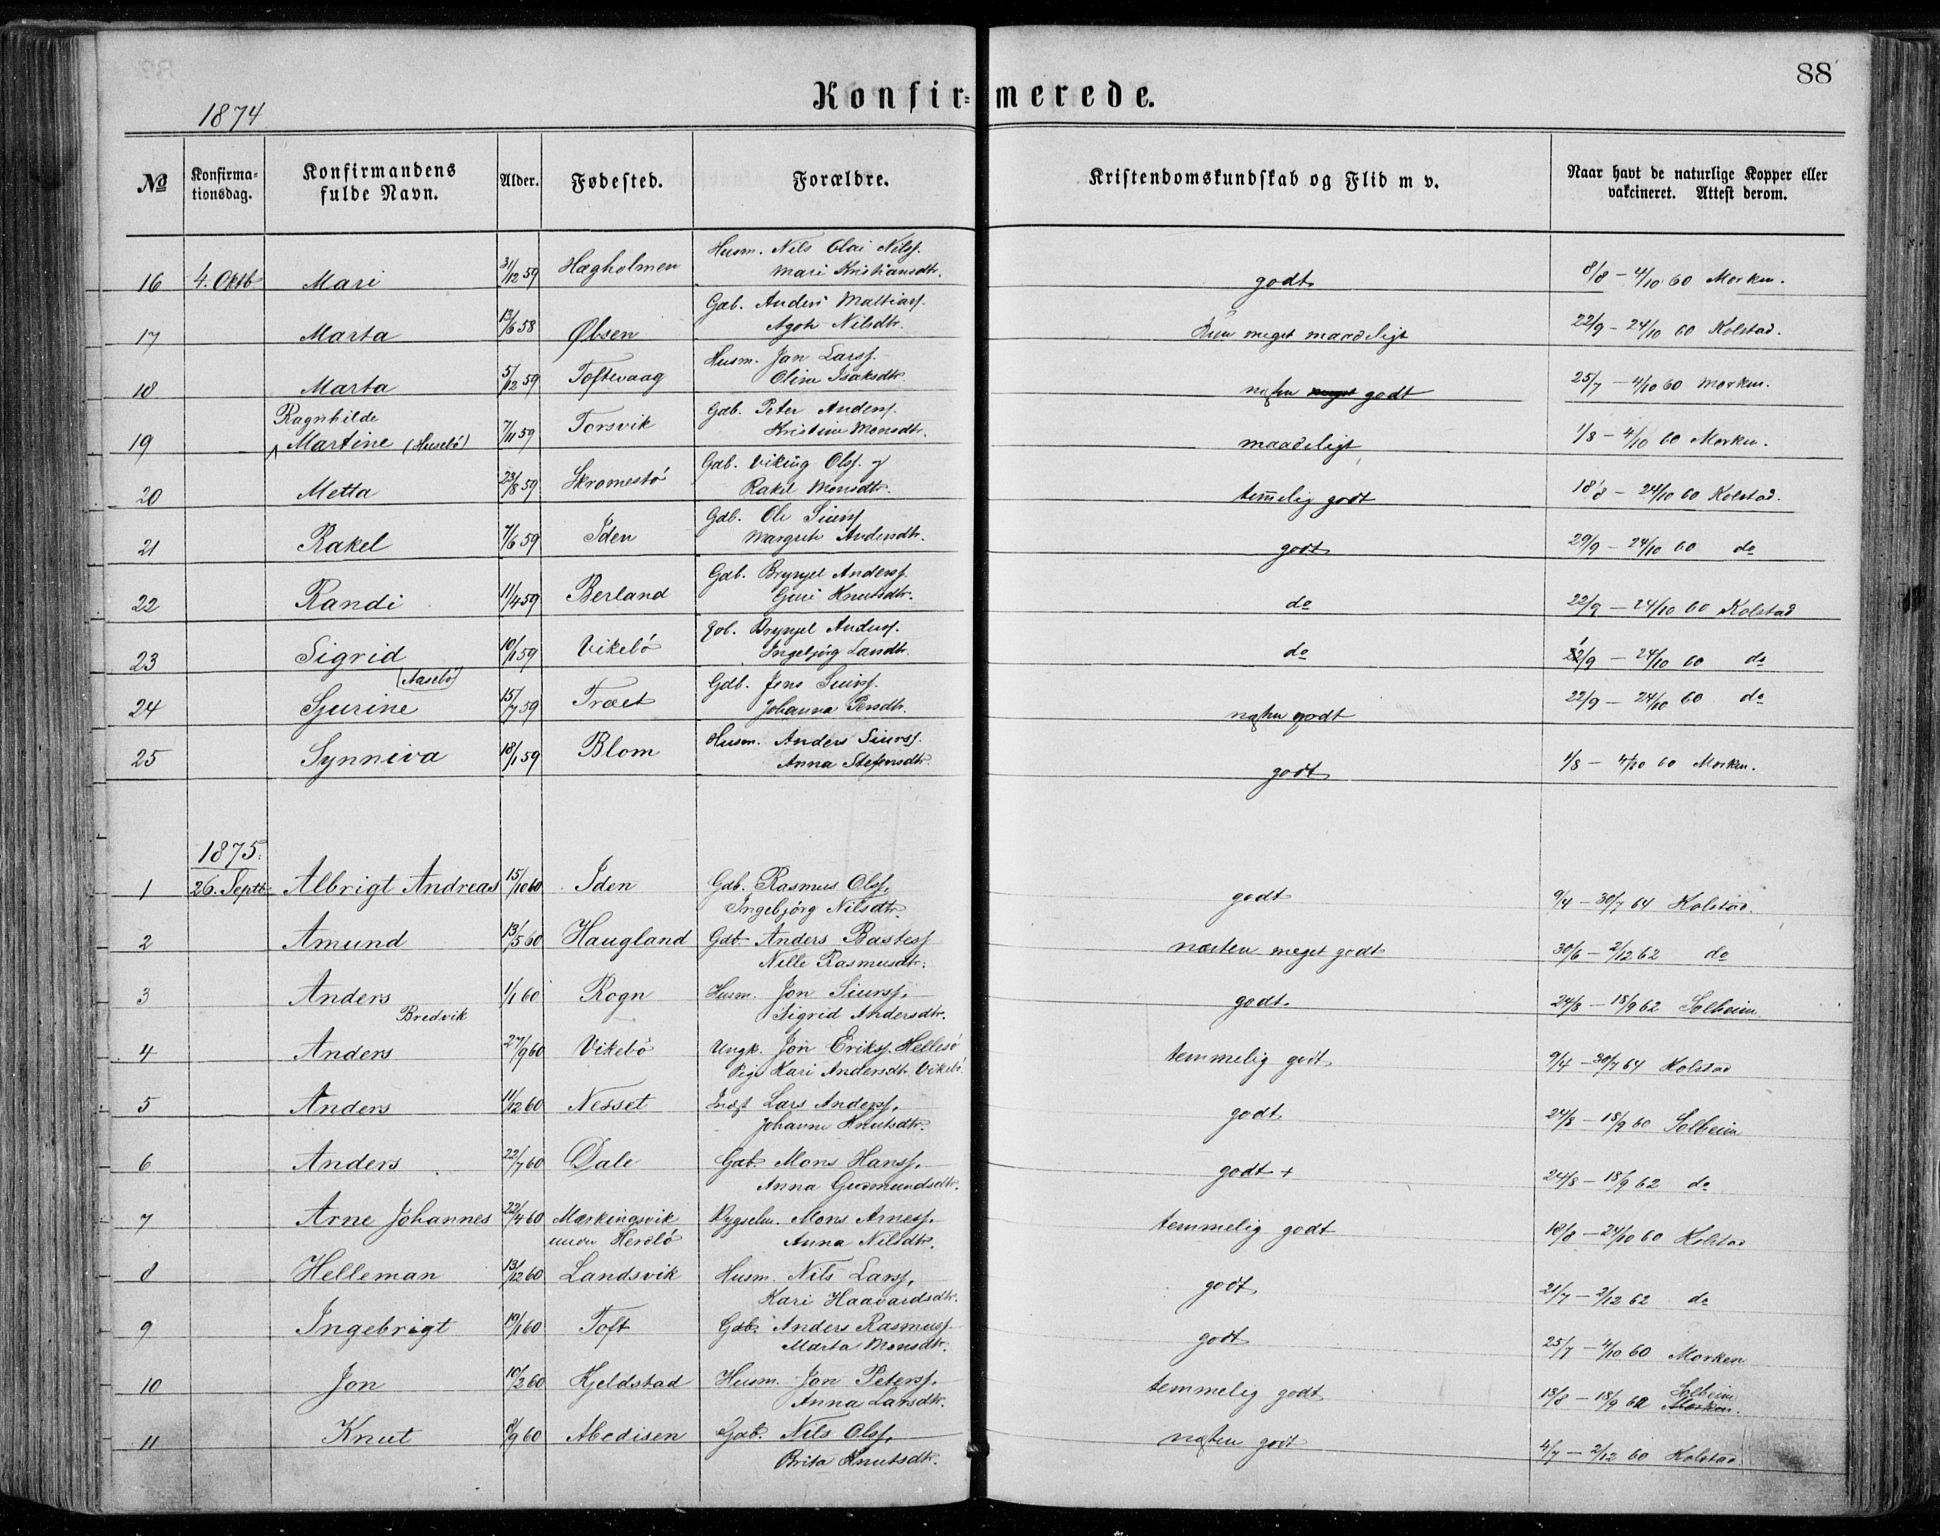 88
Konfirmerede.
1874
№ | Konfirmationsdag. | Konfirmandens fulde Navn. | Alder. | Fødested. | Forældre. | Kristendomskundskab og Flid m v. | Naar havt de naturlige Kopper eller vakcineret. Attest derom.
16 | 4. Oktb | Mari | 31/12 59 | Hægholmen | Husm. Nils Olai Nilss. Mari Kristiansdtr. | godt | 8/8 – 4/10 60 Morken.
17 | Marta | 13/6 58 | Øbsen | Gdb. Anders Mattiass. Agote Nilsdtr. | meget maadeligt | 22/9 – 24/10 60 Kolstad.
18 | Marta | 5/12 59 | Toftevaag | Husm. Jan Larss. Oline Isaksdtr. | næsten meget godt | 25/7 – 4/10 60 Morken.
19 | Ragnhilde Martine (Husebö) | 7/11 59 | Torsvik | Gdb. Peter Anderss. Kristine Monsdtr. | maadeligt | 1/8 – 4/10 60 Morken.
20 | Metta | 23/8 59 | Skromestö | Gdb. Viking Olss. og Rakel Monsdtr. | temmelig godt | 18/8 – 24/10 60 Kolstad.
21 | Rakel | 7/6 59 | Iden | Gdb. Ole Siurss. Margrete Andersdtr. | godt | 29/9 – 24/10 60 do
22 | Randi | 11/4 59 | Berland | Gdb. Brynjel Anderss. Guri Knutsdtr. | do | 22/9 – 24/10 60 Kolstad
23 | Sigrid | 10/1 59 | Vikebö | Gdb. Brynjel Anderss. Ingebjörg Larsdtr. | do | 22/9 – 24/10 60 do
24 | Sjurine (Aasebö) | 15/7 59 | Træet | Gdb. Jens Siurss. Johanna Persdtr. | næsten godt | 22/9 – 24/10 60 do
25 | Synneva | 18/1 59 | Blom | Husm. Anders Siurss. Anna Stefensdtr. | godt | 1/8 – 4/10 60 Morken.
1875.
1 | 26. Septb | Albrigt Andreas | 15/10 60 | Iden | Gdb. Rasmus Olss, Ingebjörg Nilsdtr. | godt | 9/4 – 30/7 64 Kolstad.
2 | Amund | 13/5 60 | Haugland | Gdb. Anders Bastess Nille Rasmusdtr. | næsten meget godt | 30/6 – 2/12 62 do
3 | Anders Bredvik | 1/1 60 | Rogn | Husm. Jon Siurss, Sigrid Andersdtr. | godt | 24/8 – 18/9 62 Solheim
4 | Anders | 27/9 60 | Vikebö | Ungk. Jon Erikss. Hellesö Pige Kari Andersdtr Vikebö | temmelig godt | 9/4 – 30/7 64 Kolstad
5 | Anders | 11/12 60 | Nesset | Inds Lars Anderss, Johanne Knutsdtr. | godt | 24/8 – 18/9 60 Solheim
6 | Anders | 22/7 60 | Dale | Gdb Mons Hanss, Anna Gudmundsdtr. | godt + | 24/8 – 18/9 62 do
7 | Arne Johannes | 22/4 60 | Mærkingsvik under Herdlö | Rygselm. Mons Arness. Anna Nilsdtr. | temmelig godt | 18/8 – 24/10 60 Kolstad
8 | Helleman | 13/12 60 | Landsvik | Husm. Nils Larss, Kari Haavardsdtr. | godt | 21/7 – 2/12 62 do
9 | Ingebrigt | 19/1 60 | Toft | Gdb. Anders Rasmuss Marta Monsdtr. | godt | 25/7 – 4/10 60 Morken
10 | Jon | 10/2 60 | Kjeldstad | Husm. Jon Peterss, Anna Larsdtr. | temmelig godt | 18/8 – 18/9 62 Solheim Morken.
11 | Knut | 8/9 60 | Abedisen | Gdb. Nils Olss, Brita Knutsdtr. | næsten godt | 4/7 – 2/12 60 Kolstad